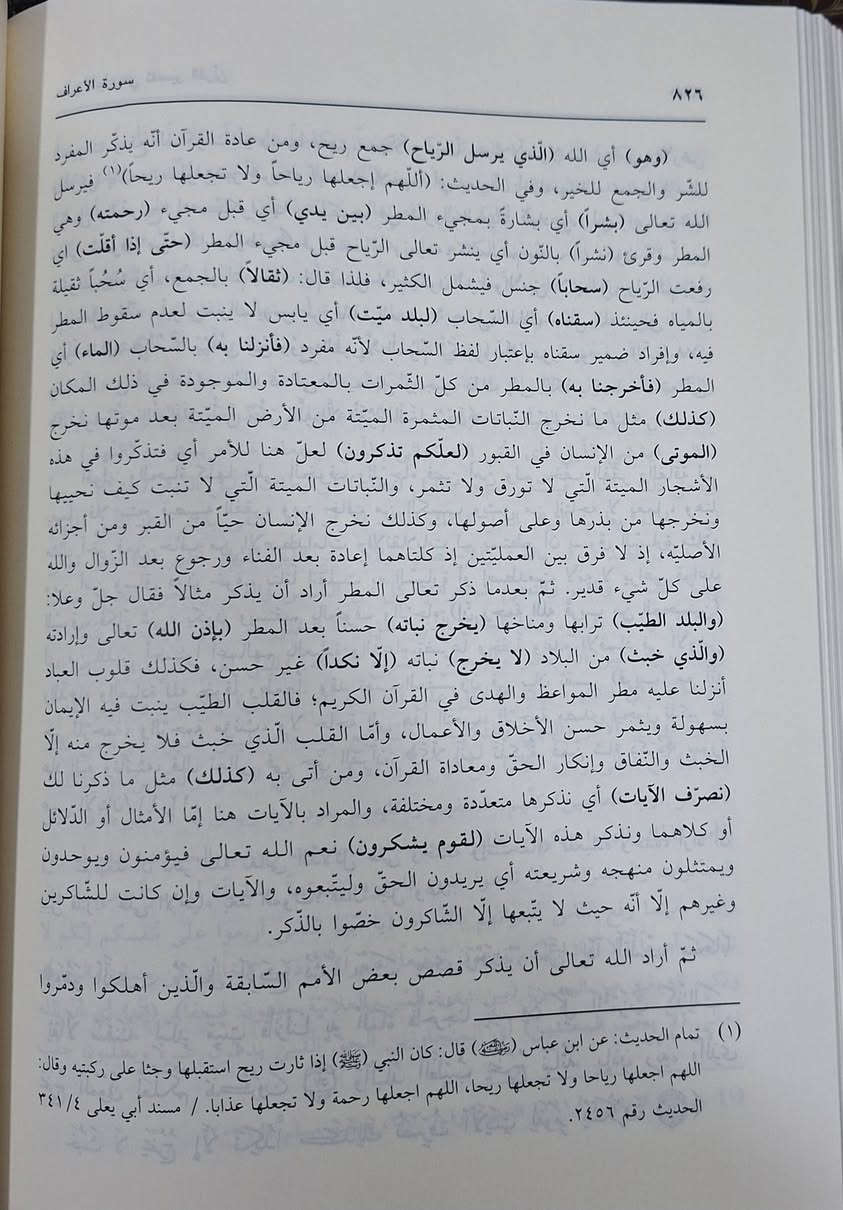 ٨٢٦
سورة الأعراف
(وهو) أي الله (الّذي يرسل الرّياح) جمع ريح، ومن عادة القرآن أنّه يذكّر المفرد
للشّر والجمع للخير، وفي الحديث: (أللّهم إجعلها رياحاً ولا تجعلها ريحاً)(١) فيرسل
الله تعالى (بشراً) أي بشارةً بمجيء المطر (بين يدي) أي قبل مجيء (رحمته) وهي
المطر وقرئ (نشراً) بالنّون أي ينشر تعالى الرّياح قبل مجيء المطر (حتّى إذا أقلّت) اي
رفعت الرّياح (سحاباً) جنس فيشمل الكثير، فلذا قال: (ثقالاً) بالجمع، أي سُحُباً ثقيلة
بالمياه فحينئذ (سقناه) أي السّحاب (لبلد ميّت) أي يابس لا ينبت لعدم سقوط المطر
فيه، وإفراد ضمير سقناه بإعتبار لفظ السّحاب لأنّه مفرد (فأنزلنا به) بالسّحاب (الماء) أي
المطر (فأخرجنا به) بالمطر من كلّ الثّمرات بالمعتادة والموجودة في ذلك المكان
(كذلك) مثل ما نخرج النّباتات المثمرة الميّتة من الأرض الميّتة بعد موتها نخرج
(الموتى) من الإنسان في القبور (لعلّكم تذكرون) لعلّ هنا للأمر أي فتذكّروا في هذه
الأشجار الميتة الّتي لا تورق ولا تثمر، والنّباتات الميتة الّتي لا تنبت كيف نحييها
ونخرجها من بذرها وعلى أصولها، وكذلك نخرج الإنسان حيّاً من القبر ومن أجزائه
الأصليّه، إذ لا فرق بين العمليّتين إذ كلتاهما إعادة بعد الفناء ورجوع بعد الزّوال والله
على كلّ شيء قدير. ثمّ بعدما ذكر تعالى المطر أراد أن يذكر مثالاً فقال جلّ وعلا:
(والبلد الطيّب) ترابها ومناخها (يخرج نباته) حسناً بعد المطر (بإذن الله) تعالى وإرادته
(والّذي خبث) من البلاد (لا يخرج) نباته (إلّا نكداً) غير حسن، فكذلك قلوب العباد
أنزلنا عليه مطر المواعظ والهدى في القرآن الكريم؛ فالقلب الطيّب ينبت فيه الإيمان
بسهولة ويثمر حسن الأخلاق والأعمال، وأمّا القلب الّذي خبث فلا يخرج منه إلّا
الخبث والنّفاق وإنكار الحقّ ومعاداة القرآن، ومن أتى به (كذلك) مثل ما ذكرنا لك
(نصرّف الآيات) أي نذكرها متعدّدة ومختلفة، والمراد بالآيات هنا إمّا الأمثال أو الدّلائل
أو كلاهما ونذكر هذه الآيات (لقوم يشكرون) نعم الله تعالى فيؤمنون ويوحدون
ويمتثلون منهجه وشريعته أي يريدون الحقّ وليتّبعوه، والآيات وإن كانت للشّاكرين
وغيرهم إلّا أنّه حيث لا يتّبعها إلّا الشّاكرون خصّوا بالذّكر.
ثمّ أراد الله تعالى أن يذكر قصص بعض الأمم السّابقة والّذين أهلكوا ودمّروا
(١) تمام الحديث: عن ابن عباس (رضي الله عنه) قال: كان النبي (ﷺ) إذا ثارت ريح استقبلها وجثا على ركبتيه وقال:
اللهم اجعلها رياحا ولا تجعلها ريحا، اللهم اجعلها رحمة ولا تجعلها عذابا. / مسند أبي يعلى ٣٤١/٤
الحديث رقم ٢٤٥٦.